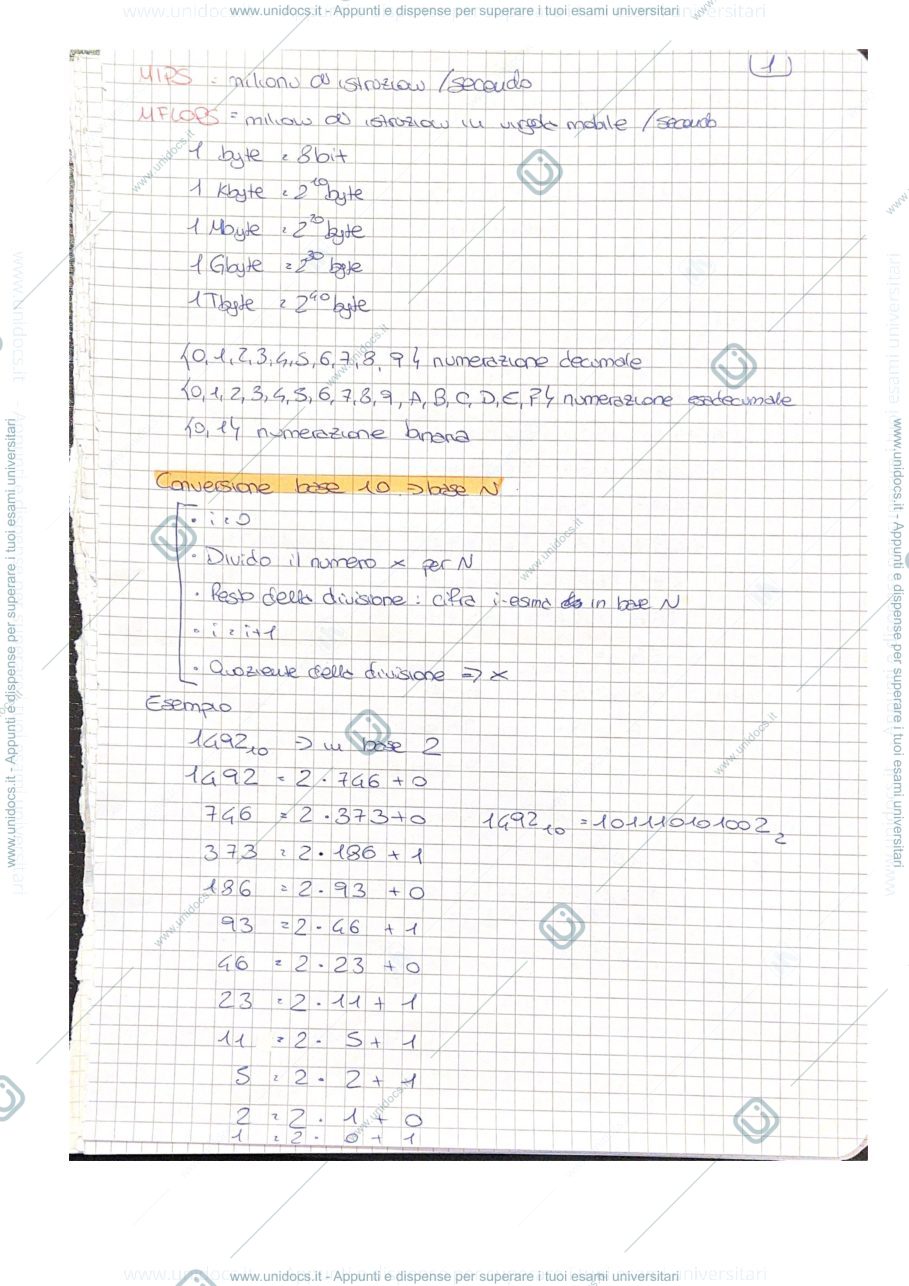 www.unidocs.it - Appunti e dispense per superare i tuoi esami universitari
1
MIPS = milioni di istruzioni / secondo
MFLOPS = milioni di istruzioni in virgola mobile / secondo
1 byte = 8bit
1 Kbyte = 2^10 byte
1 Mbyte = 2^20 byte
1 Gbyte = 2^30 byte
1 Tbyte = 2^40 byte
{0,1,2,3,4,5,6,7,8,9} numerazione decimale
{0,1,2,3,4,5,6,7,8,9,A,B,C,D,E,F} numerazione esadecimale
{0,1} numerazione binaria
Conversione base 10 => base N
• i = 0
• Divido il numero x per N
• Resto della divisione : cifra i-esima in base N
• i = i+1
• Quoziente della divisione => x
Esempio
1492₁₀ => in base 2
1492 = 2 · 746 + 0
746 = 2 · 373 + 0 1492₁₀ = 101110101002₂
373 = 2 · 186 + 1
186 = 2 · 93 + 0
93 = 2 · 46 + 1
46 = 2 · 23 + 0
23 = 2 · 11 + 1
11 = 2 · 5 + 1
5 = 2 · 2 + 1
2 = 2 · 1 + 0
1 = 2 · 0 + 1
www.unidocs.it - Appunti e dispense per superare i tuoi esami universitari